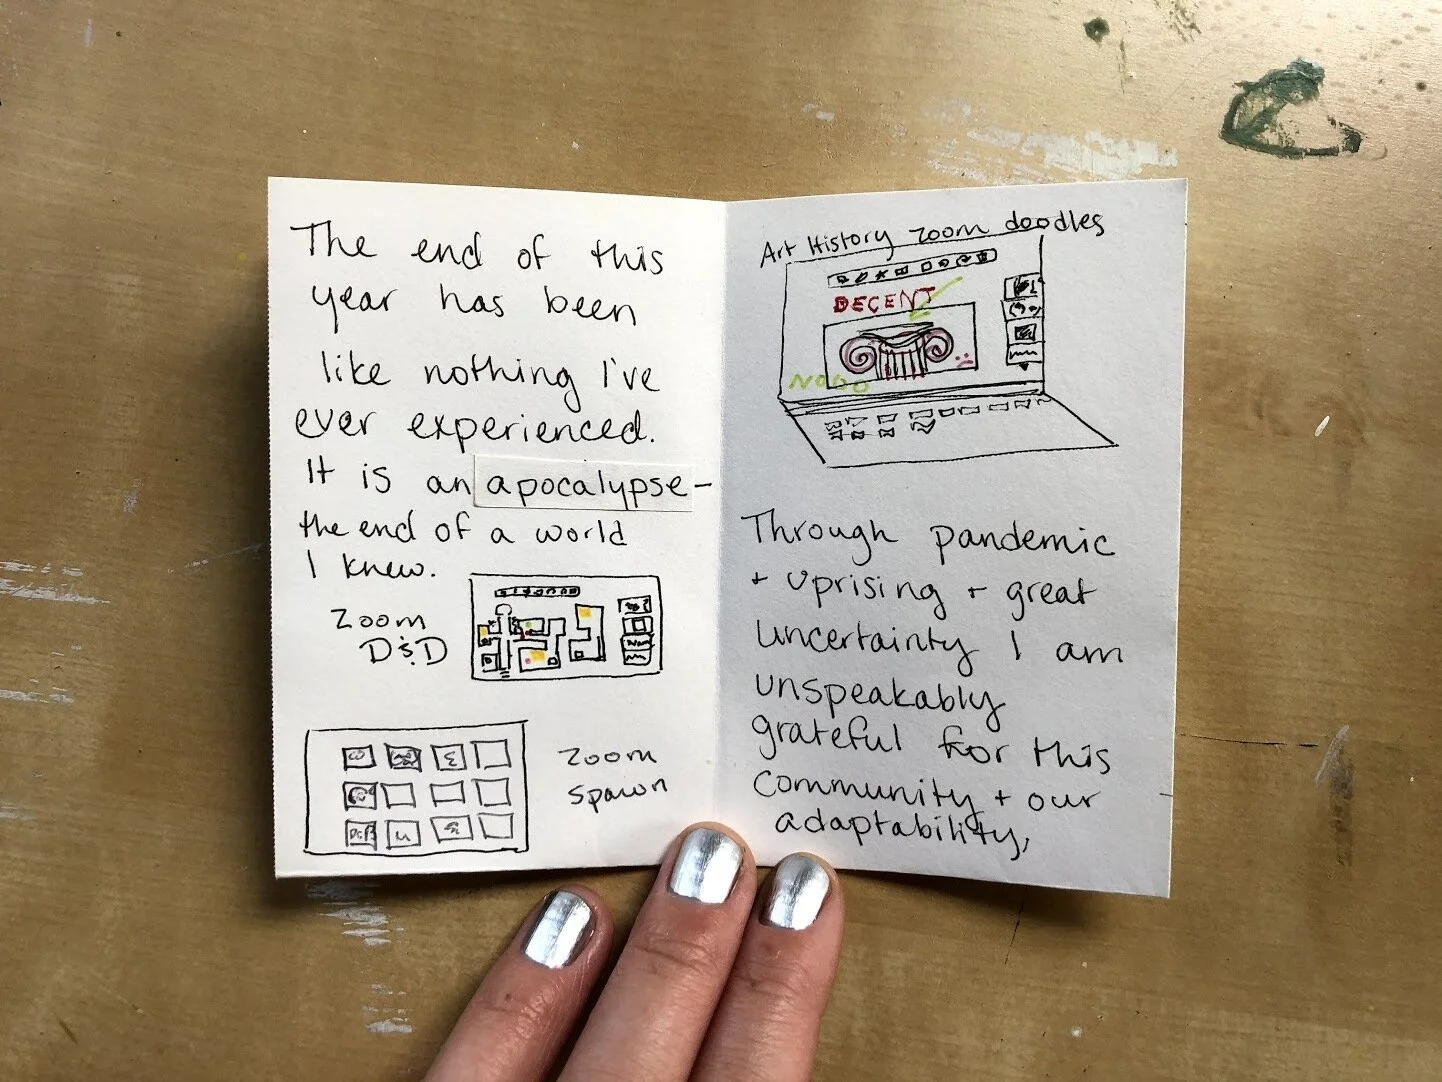 The end of this
year has been
like nothing I've
ever experienced.
It is an apocalypse-
the end of a world
I knew.
Zoom
D&D
Zoom
Spawn
Art History Zoom doodles
DECENT
NOOO
Through pandemic
+ uprising + great
uncertainty I am
unspeakably
grateful for this
community + our
adaptability,